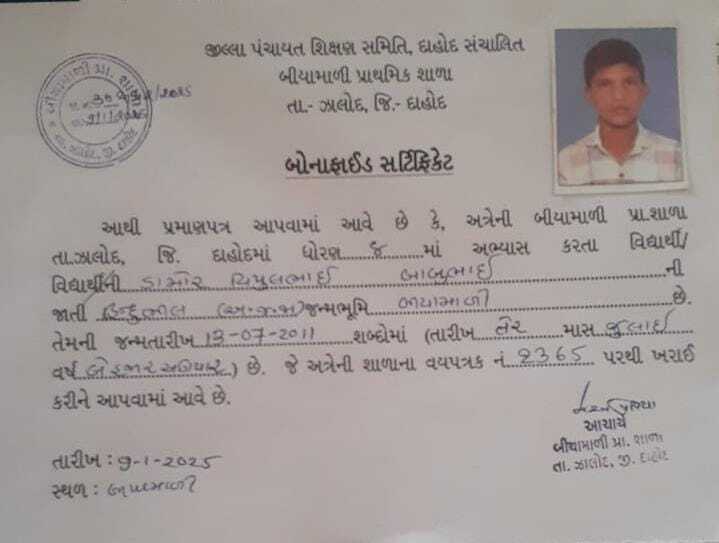 જીલ્લા પંચાયત શિક્ષણ સમિતિ, દાહોદ સંચાલિત
બીયામાળી પ્રાથમિક શાળા
તા.- ઝાલોદ, જિ.- દાહોદ
બોનાફાઈડ સર્ટિફિકેટ
આથી પ્રમાણપત્ર આપવામાં આવે છે કે, અત્રેની બીયામાળી પ્રા.શાળા
તા.ઝાલોદ, જિ. દાહોદમાં ધોરણ ૪ માં અભ્યાસ કરતા વિદ્યાર્થી/
વિદ્યાર્થીની ડામોર વિપુલભાઈ બાબુભાઈ ની
જાતી હિન્દુ ભીલ (અ.જ.જા) જન્મભૂમિ બીયામાળી છે.
તેમની જન્મતારીખ 13-07-2011 શબ્દોમાં (તારીખ તેર માસ જુલાઈ
વર્ષ બે હજાર અગિયાર) છે. જે અત્રેની શાળાના વયપત્રક નં. 2365 પરથી ખરાઈ
કરીને આપવામાં આવે છે.
આચાર્ય
બીયામાળી પ્રા. શાળા
તા. ઝાલોદ, જી. દાહોદ
તારીખ : 9-1-2025
સ્થળ : બીયામાળી